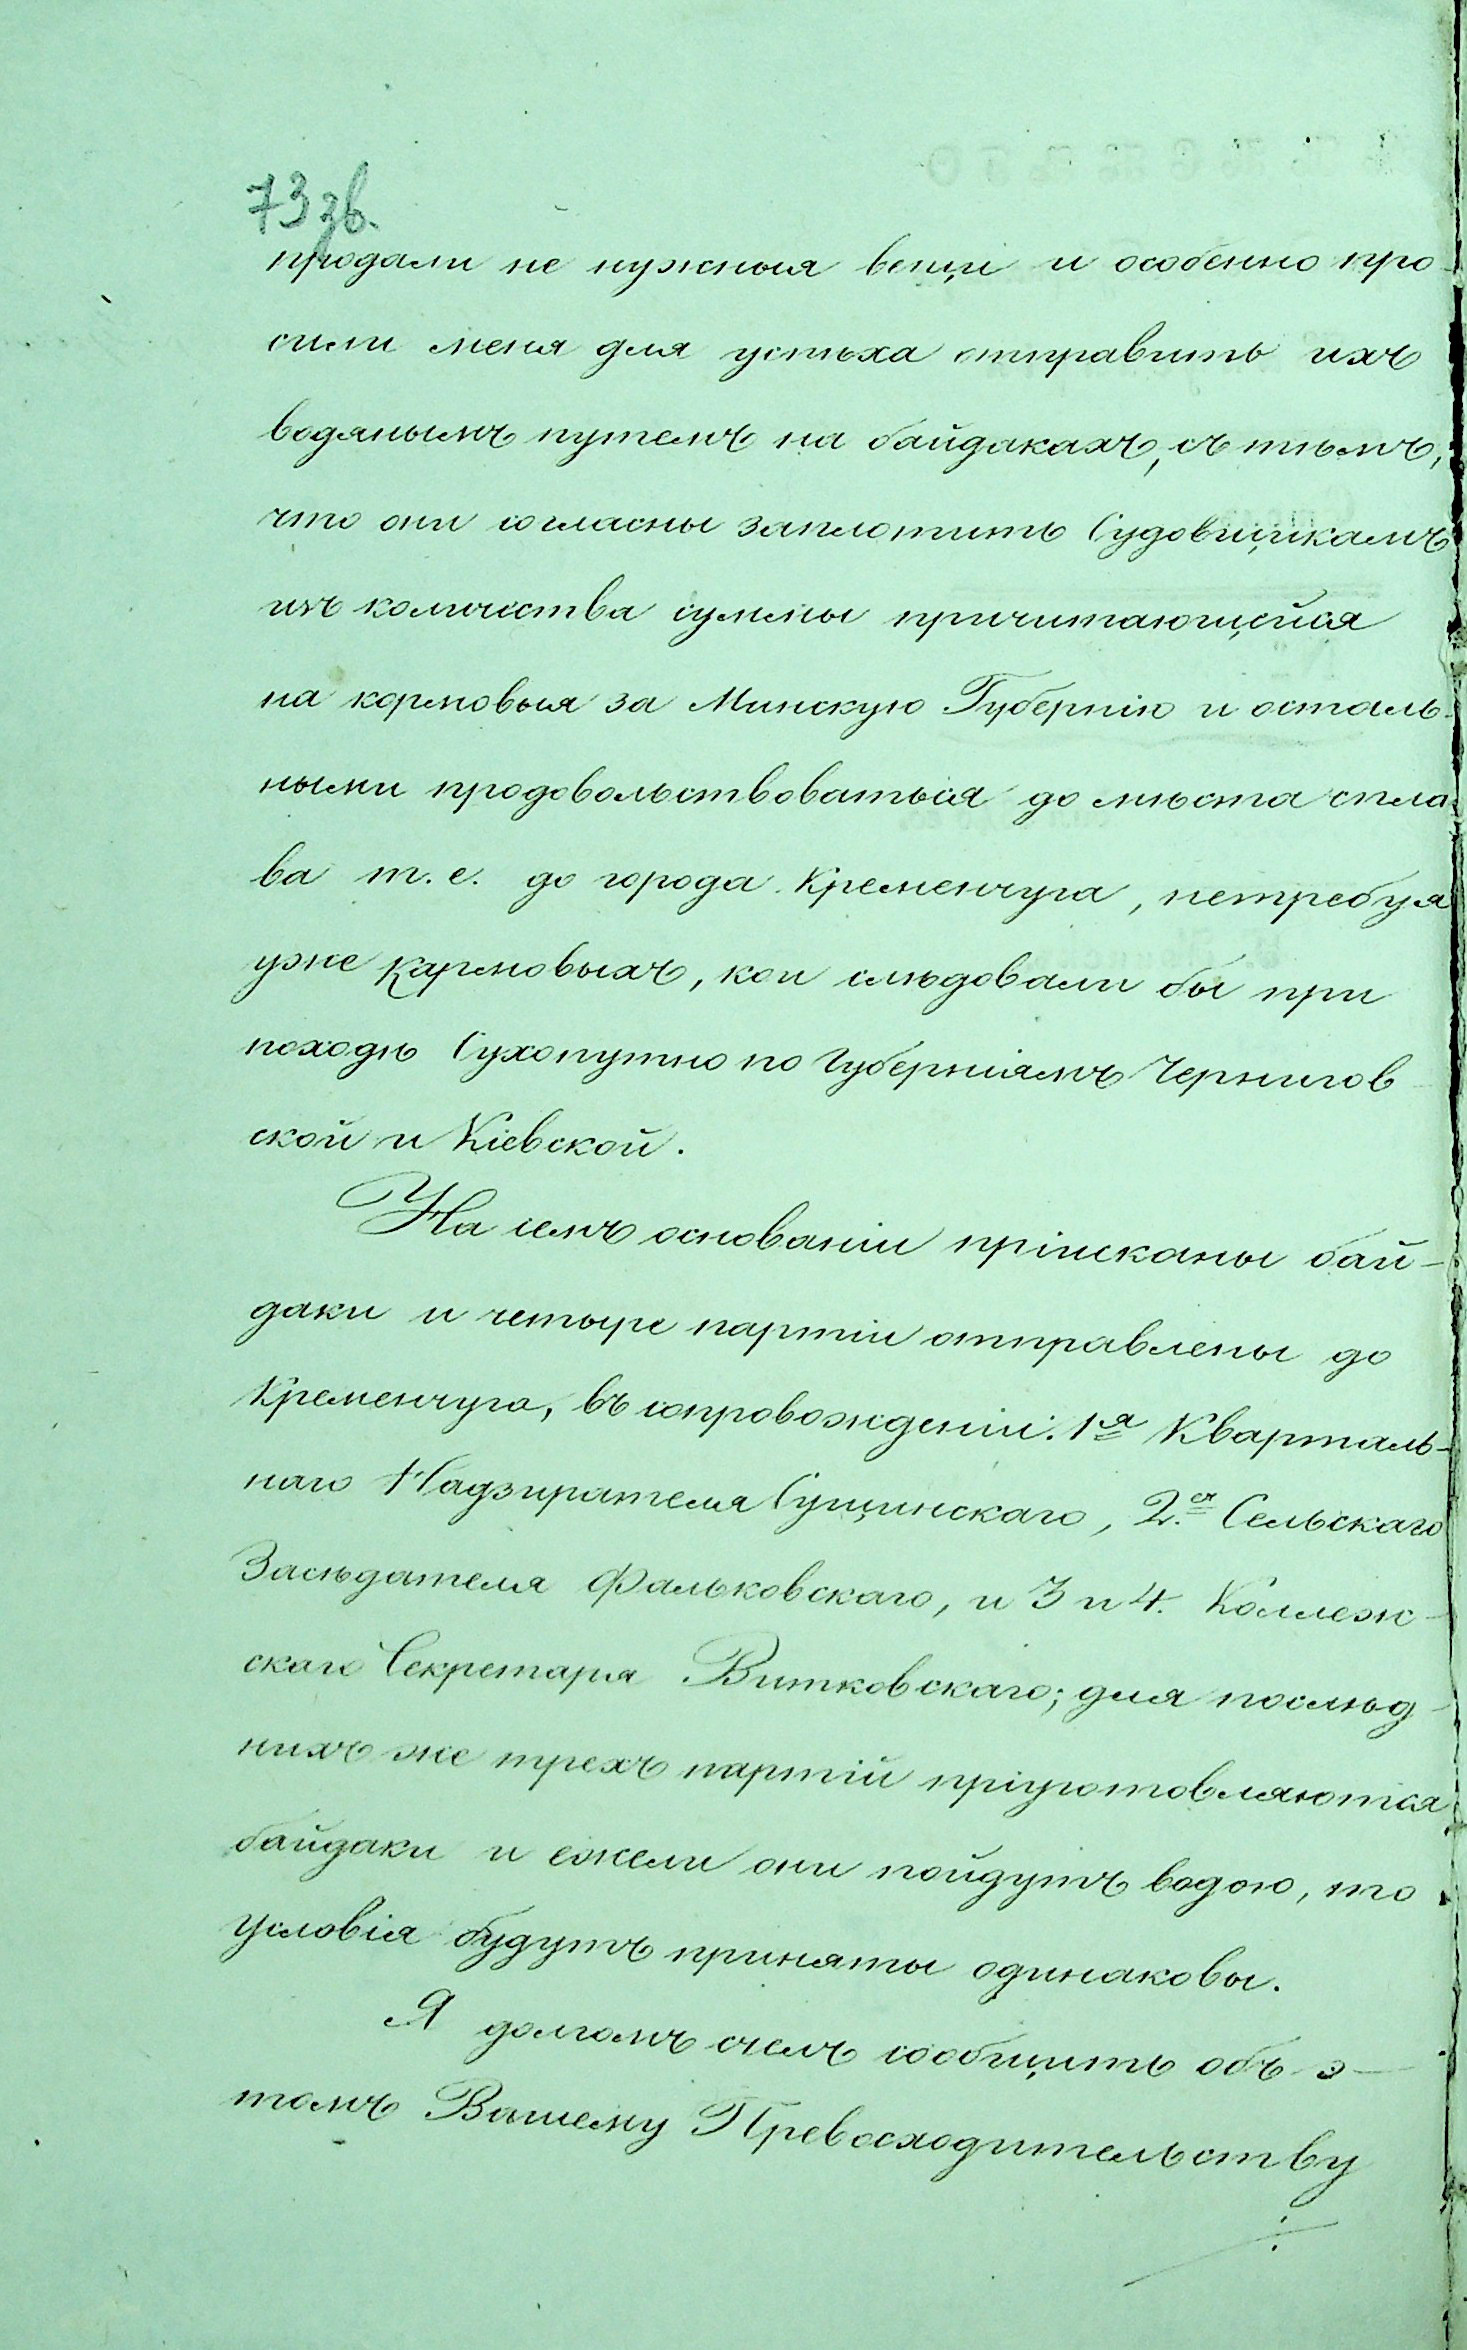 73 зв.
продали не нужныя вещи и особенно про-
сили меня для успѣха отправить ихъ
водянымъ путемъ на байдакахъ, съ тѣмъ,
что они согласны заплотить Судовщикамъ
изъ количества суммы причитающейся
на кормовыя за Минскую Губернію и осталь-
ными продовольствоваться до мѣста спла-
ва т. е. до города Кременчуга, нетребуя
уже кармовыхъ, кои слѣдовали бы при
походѣ Сухопутно по Губерніямъ Чернигов-
ской и Кіевской.
На семъ основаніи пріисканы бай-
даки и четыре партіи отправлены до
Кременчуга, въ сопровожденіи: 1я Кварталь-
наго Надзирателя Сущинскаго, 2.я Сельскаго
Засѣдателя Фальковскаго, и 3 и 4. Коллеж-
скаго Секретаря Витковскаго; для послѣд-
нихъ же трехъ партій пріуготовляются
байдаки и ежели они пойдутъ водою, то
условія будутъ приняты одинаковы.
Я долгомъ счелъ сообщить объ э-
томъ Вашему Превосходительству